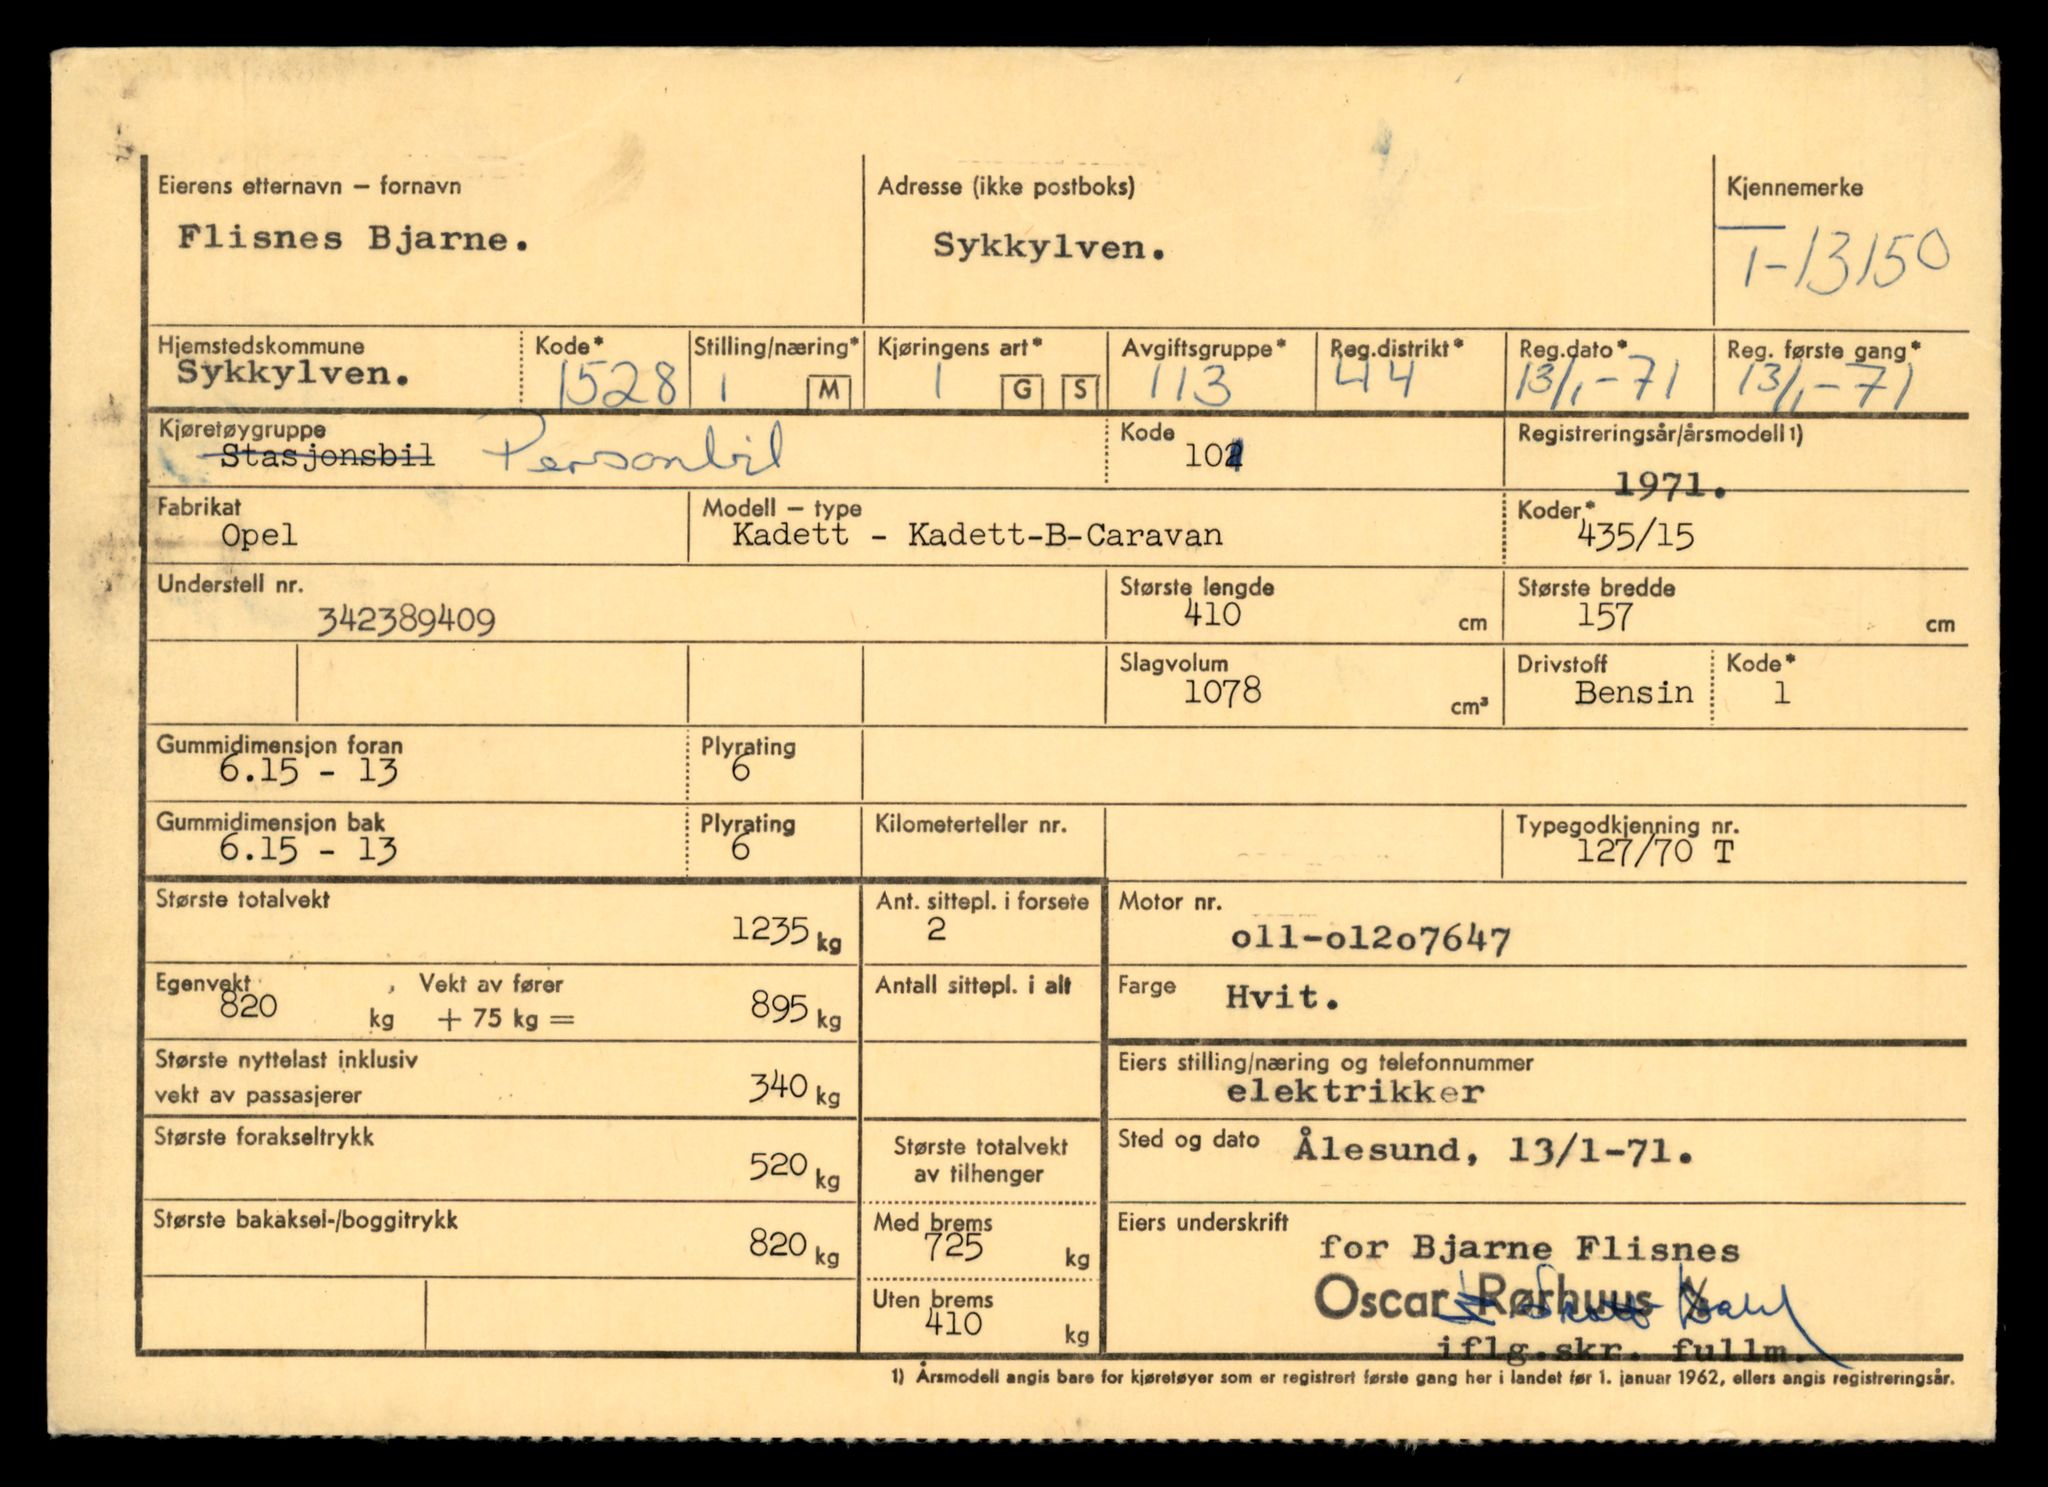 Eierens etternavn – fornavn
Flisnes Bjarne.
Adresse (ikke postboks)
Sykkylven.
Kjennemerke
T-13150
Hjemstedskommune
Sykkylven.
Kode*
1528
Stilling/næring*
1 M
Kjøringens art*
1 G S
Avgiftsgruppe*
113
Reg.distrikt*
44
Reg.dato*
13/1-71
Reg. første gang*
13/1-71
Kjøretøygruppe
Stasjonsbil Personbil
Kode
101
Registreringsår/årsmodell 1)
1971.
Fabrikat
Opel
Modell – type
Kadett - Kadett-B-Caravan
Koder*
435/15
Understell nr.
342389409
Største lengde
410 cm
Største bredde
157 cm
Slagvolum
1078 cm³
Drivstoff
Bensin
Kode*
1
Gummidimensjon foran
6.15 - 13
Plyrating
6
Gummidimensjon bak
6.15 - 13
Plyrating
6
Kilometerteller nr.
Typegodkjenning nr.
127/70 T
Største totalvekt
1235 kg
Ant. sittepl. i forsete
2
Motor nr.
o11-o12o7647
Egenvekt
820 kg
Vekt av fører
+ 75 kg = 895 kg
Antall sittepl. i alt
Farge
Hvit.
Største nyttelast inklusiv
vekt av passasjerer
340 kg
Eiers stilling/næring og telefonnummer
elektrikker
Største forakseltrykk
520 kg
Største totalvekt
av tilhenger
Sted og dato
Ålesund, 13/1-71.
Største bakaksel-/boggitrykk
820 kg
Med brems
725 kg
Uten brems
410 kg
Eiers underskrift
for Bjarne Flisnes
Oscar Rørhuus
iflg.skr. fullm.
1) Årsmodell angis bare for kjøretøyer som er registrert første gang her i landet før 1. januar 1962, ellers angis registreringsår.